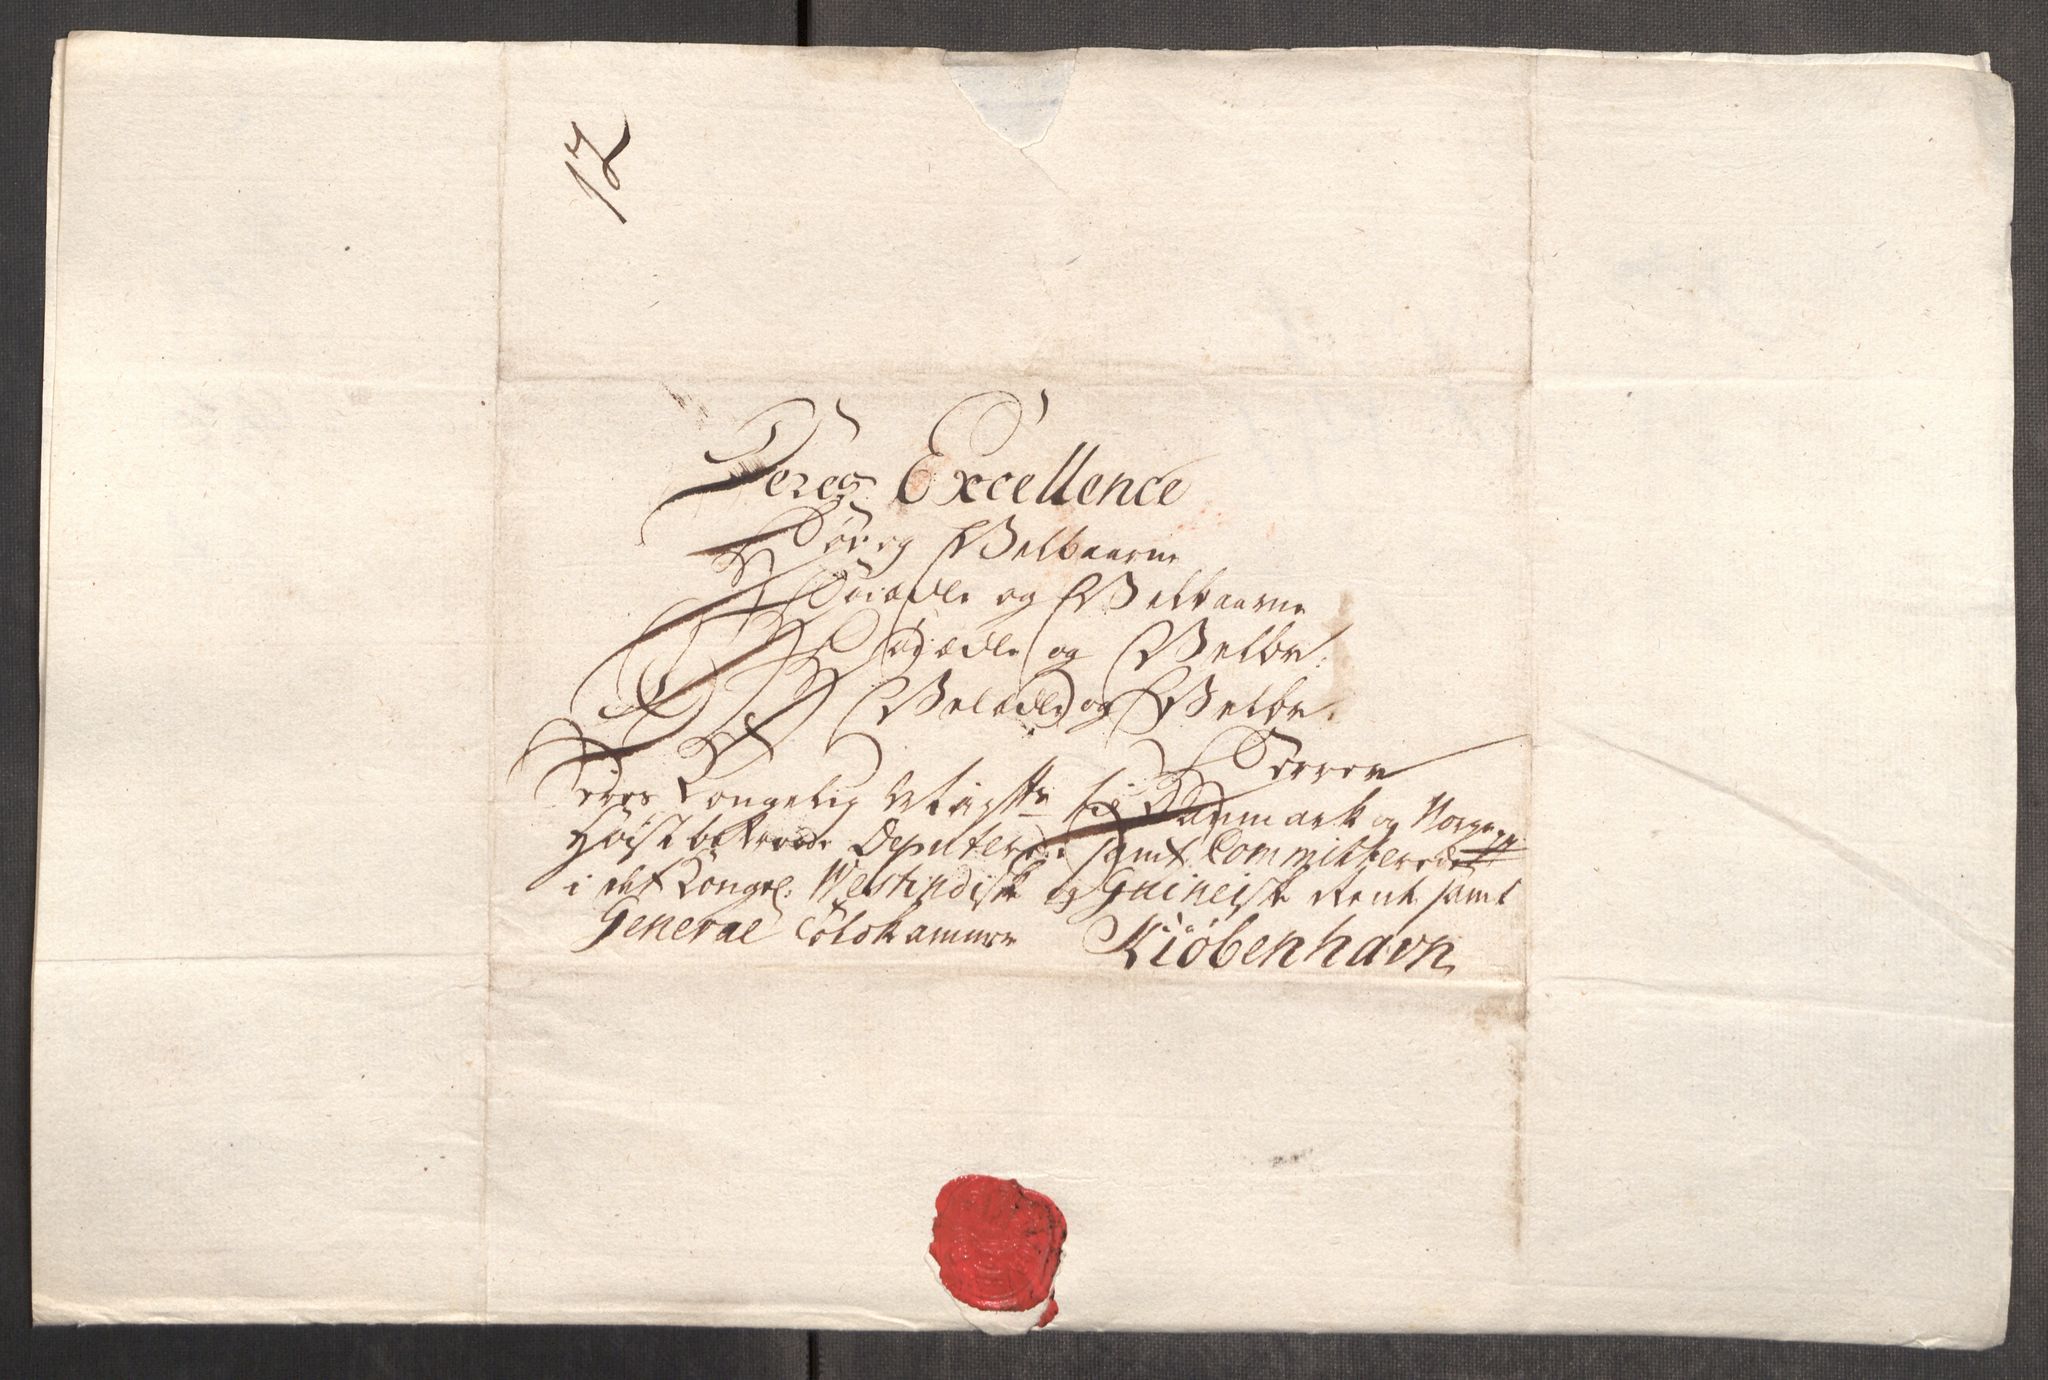 12
Deres Excellence
Høy og Velbaarne
Høiædle og Velbaarne
Høyædle og Velbr:
Velædle og Velbr.
Herrer
Deres Kongelig Mayst: til Danmark og Norge p.p.
Høist betroede Deputerede samt Committerede
i det Kongel: Westindiske og Guineiske Rente samt
General Toldkammer Kiøbenhavn